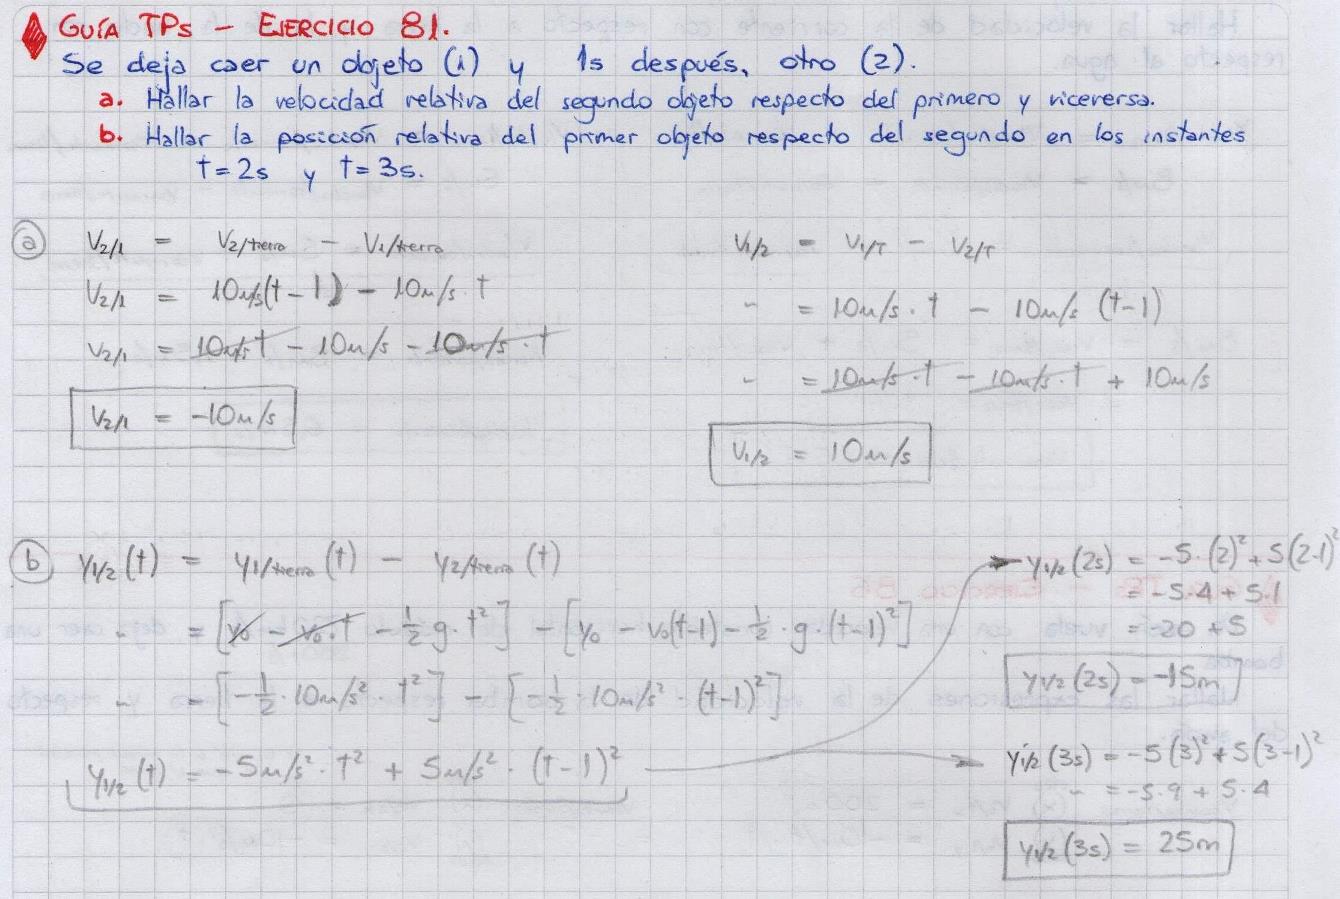 GUÍA TPs - EJERCICIO 81.
Se deja caer un objeto (1) y 1s después, otro (2).
a. Hallar la velocidad relativa del segundo objeto respecto del primero y viceversa.
b. Hallar la posición relativa del primer objeto respecto del segundo en los instantes
t=2s y t=3s.
a
V2/1 = V2/tierra - V1/tierra
V2/1 = 10m/s(t-1) - 10m/s.t
V2/1 = 10m/s t - 10m/s - 10m/s.t
V2/1 = -10m/s
V1/2 = V1/T - V2/T
" = 10m/s.t - 10m/s (t-1)
" = 10m/s.t - 10m/s.t + 10m/s
V1/2 = 10m/s
b
Y1/2 (t) = Y1/tierra (t) - Y2/tierra (t)
" = [Y0 - V0.t - 1/2 g.t²] - [Y0 - V0(t-1) - 1/2.g.(t-1)²]
" = [-1/2.10m/s² t²] - [-1/2.10m/s².(t-1)²]
Y1/2 (t) = -5m/s².t² + 5m/s².(t-1)²
Y1/2 (2s) = -5.(2)² + 5(2-1)²
= -5.4 + 5.1
= -20 + 5
Y1/2 (2s) = -15m
Y1/2 (3s) = -5(3)² + 5(3-1)²
" = -5.9 + 5.4
Y1/2 (3s) = 25m